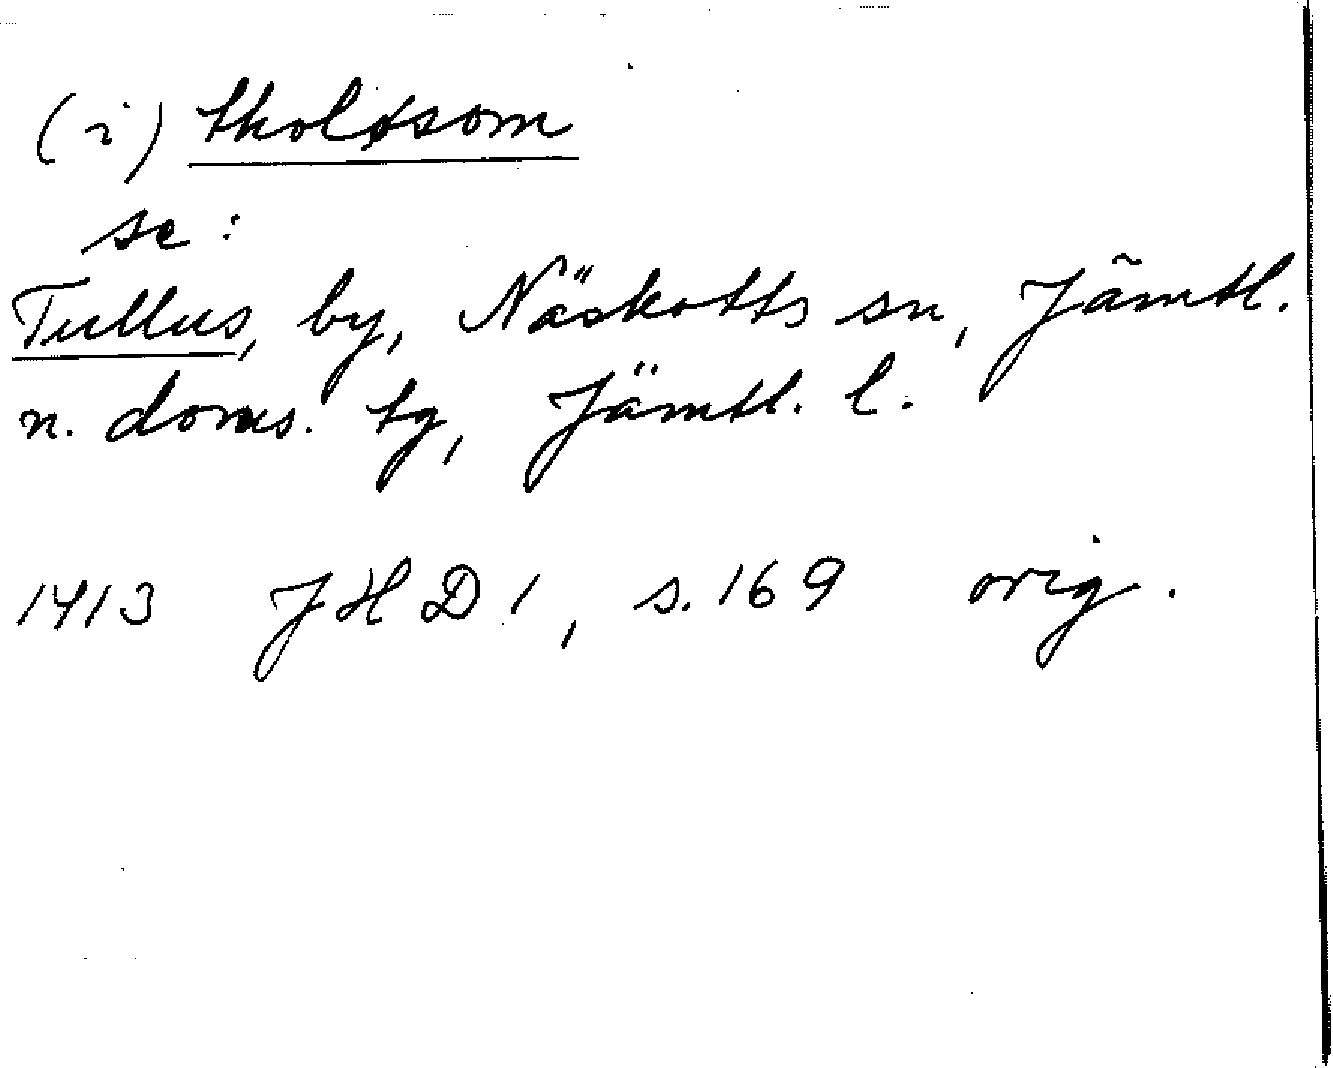 (i) tholøsom
se:
Tullus, by, Näskotts sn, Jämtl.
n. doms. tg, Jämtl. l.
1413 JHD 1, s. 169 orig.